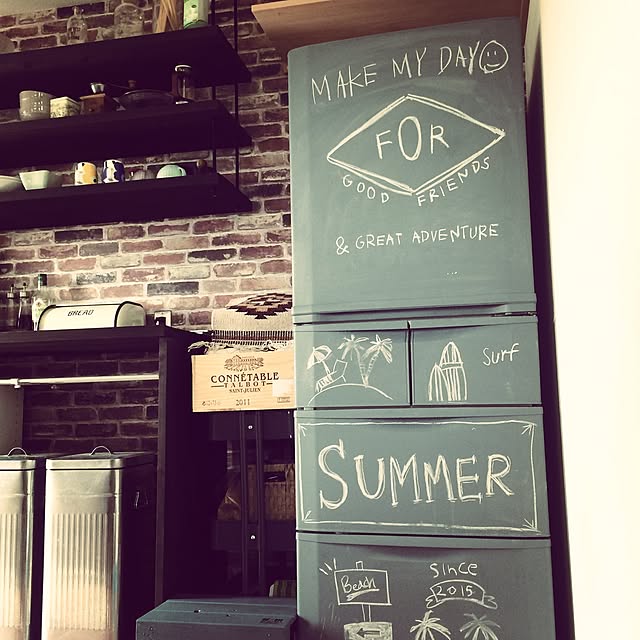 MAKE MY DAY
FOR
GOOD FRIENDS
& GREAT ADVENTURE
...
BREAD
CONNÉTABLE
TALBOT
SAINT-JULIEN
2011
Surf
SUMMER
Beach
Since
2015